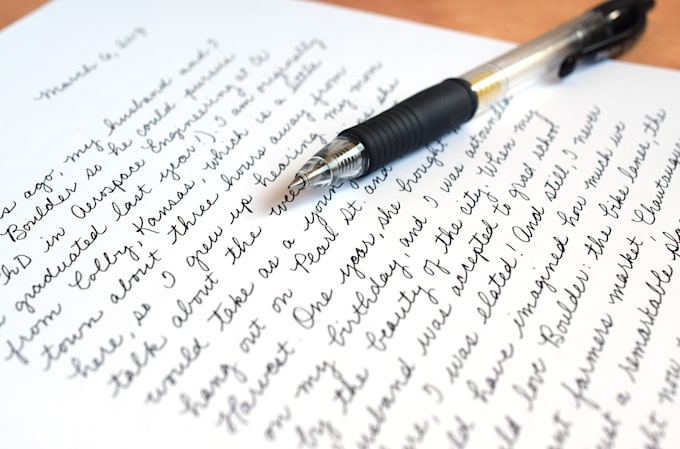 March 6,
s ago, my husband and I
Boulder so he could pursue
PhD in Aerospace Engineering at CU
graduated last year!). I am originally
from Colby, Kansas, which is a little
town about three hours away from
here, so I grew up hearing my mom
talk about the sh
would take as a young
hang out on Pearl St. and
Harvest. One year, she brought m
on my birthday, and I was astounded
by the beauty of the city. When my
usband was accepted to grad school
re, I was elated! And still, I never
ld have imagined how much we
ld love Boulder: the bike lanes, the
nt farmers market, Chautauqua
st a remarkable pla
ht now